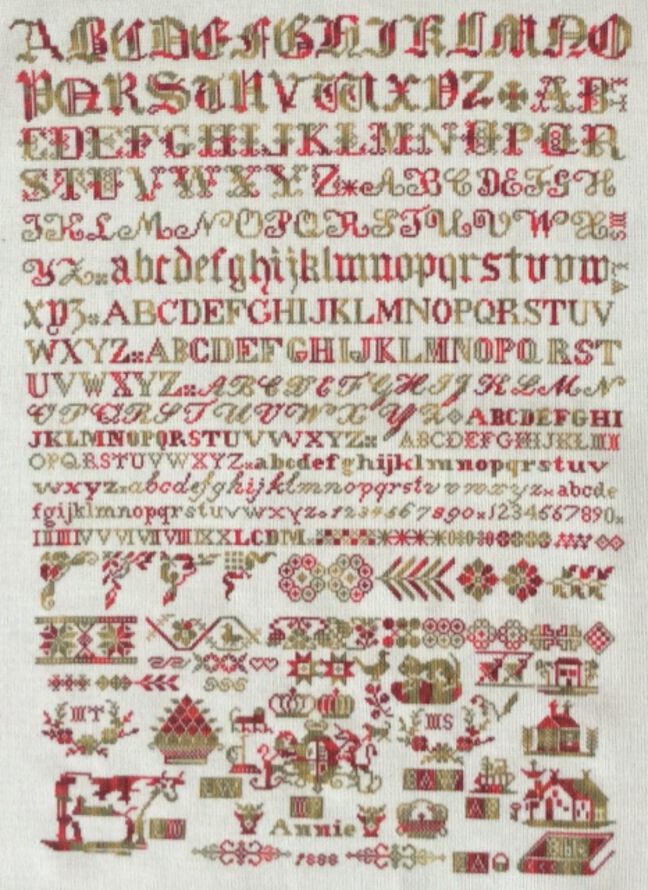 ABCDEFGHIJKLMNO
PQRSTUVWXYZ AB
CDEFGHIJKLMNOPQR
STUVWXYZ ABCDEFGH
IJKLMNOPQRSTUVWX MS
YZ abcdefghijklmnopqrstuvw LA
xyz ABCDEFGHIJKLMNOPQRSTUV
WXYZ ABCDEFGHIJKLMNOPQRST
UVWXYZ ABCDEFGHIJKLMN
OPQRSTUVWXYZ ABCDEFGHI
JKLMNOPQRSTUVWXYZ ABCDEFGHIJKLMN
OPQRSTUVWXYZ abcdefghijklmnopqrstuv
wxyz abcdefghijklmnopqrstuvwxyz abcde
fgijklmnopqrstuvwxyz 1234567890 1234567890
I II III IV V VI VII VIII IX X L C D M
MT MS
EAW
Annie
1888
Bible